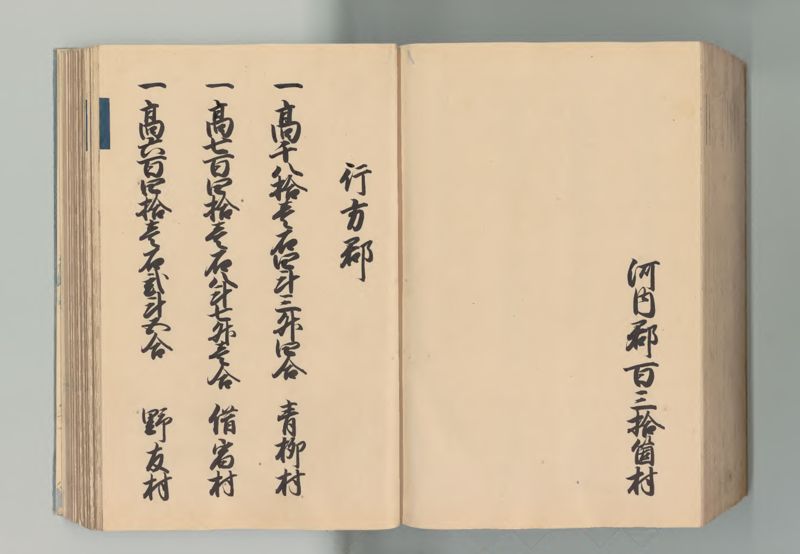 河内郡百三拾箇村
行方郡
一高千八拾壱石四斗三升四合 青柳村
一高七百四拾壱石八斗七升壱合 借宿村
一高六百四拾壱石弐斗五合 野友村